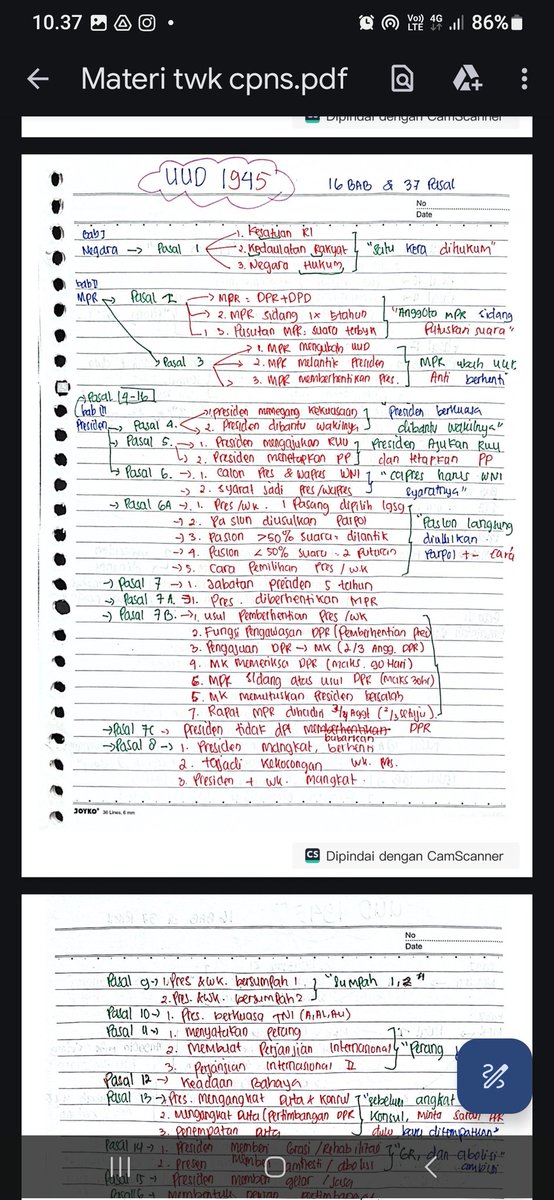 10.37 Vo)) LTE 4G 86%
Materi twk cpns.pdf
Dipindai dengan CamScanner
UUD 1945 16 BAB & 37 Pasal
No
Date
bab I
Negara → Pasal 1 1. Kesatuan RI
2. Kedaulatan Rakyat "Satu Kera dihukum"
3. Negara Hukum
bab II
MPR → Pasal 2 → MPR = DPR + DPD
→ 2. MPR sidang 1x 5tahun "Anggota MPR Sidang
3. Putusan MPR: suara terbyk Putuskan suara"
→ Pasal 3 1. MPR mengubah UUD
2. MPR melantik Presiden MPR ubah UUD
3. MPR memberhentikan Pres. Anti berhenti
→ Pasal 4-16
bab III
Presiden → Pasal 4. 1. presiden memegang kekuasaan "Presiden berkuasa
2. Presiden dibantu wakilnya dibantu wakilnya"
→ Pasal 5. → 1. Presiden mengajukan RUU Presiden Ajukan RUU
2. Presiden menetapkan PP dan tetapkan PP
→ Pasal 6. → 1. Calon Pres & Wapres WNI "Capres harus WNI
→ 2. syarat jadi Pres/wapres syaratnya"
→ Pasal 6A → 1. Pres/wk. 1 Pasang dipilih lgsg
→ 2. Paslon diusulkan Parpol "Paslon langsung
→ 3. Paslon >50% suara = dilantik diusulkan
→ 4. Paslon <50% suara = 2 Putaran Parpol +- cara
→ 5. Cara Pemilihan Pres / wk
→ Pasal 7 → 1. Jabatan presiden 5 tahun
→ Pasal 7A → 1. Pres. diberhentikan MPR
→ Pasal 7B. → 1. usul Pemberhentian Pres /wk
2. Fungsi Pengawasan DPR (Pemberhentian Pres)
3. Pengajuan DPR → MK (2/3 Angg. DPR)
4. MK memeriksa DPR (maks. 90 Hari)
6. MPR sidang atas usul DPR (maks 30hr)
5. MK memutuskan Presiden bersalah
7. Rapat MPR dihadiri 3/4 Aggt (2/3 setuju).
→ Pasal 7C → presiden tidak dpt memberhentikan DPR
bubarkan
→ Pasal 8 → 1. Presiden mangkat, berhenti
2. terjadi kekosongan wk. Pres.
3. Presiden + wk. mangkat.
JOYKO 36 Lines, 6 mm
CS Dipindai dengan CamScanner
No
Date
Pasal 9 → 1. Pres & wk. bersumpah 1. "Sumpah 1,2"
2. Pres. & wk. bersumpah 2
Pasal 10 → 1. Pres. berkuasa TNI (A,AL,AU)
Pasal 11 → 1. menyatakan perang
2. membuat Perjanjian Internasional "Perang
3. Perjanjian Internasional II
Pasal 12 → Keadaan Bahaya
Pasal 13 → Pres. mengangkat Duta & Konsul "sebelum angkat
2. Mengangkat Duta (Pertimbangan DPR Konsul, Minta saran
3. Penempatan Duta dulu baru ditempatkan"
Pasal 14 → 1. Presiden memberi Grasi / Rehabilitasi "GR, dan abolisi
2. Presen memberi amnesti / abolisi
Pasal 15 → Presiden memberi gelar / Jasa
Pasal 16 → Membentuk Dewan